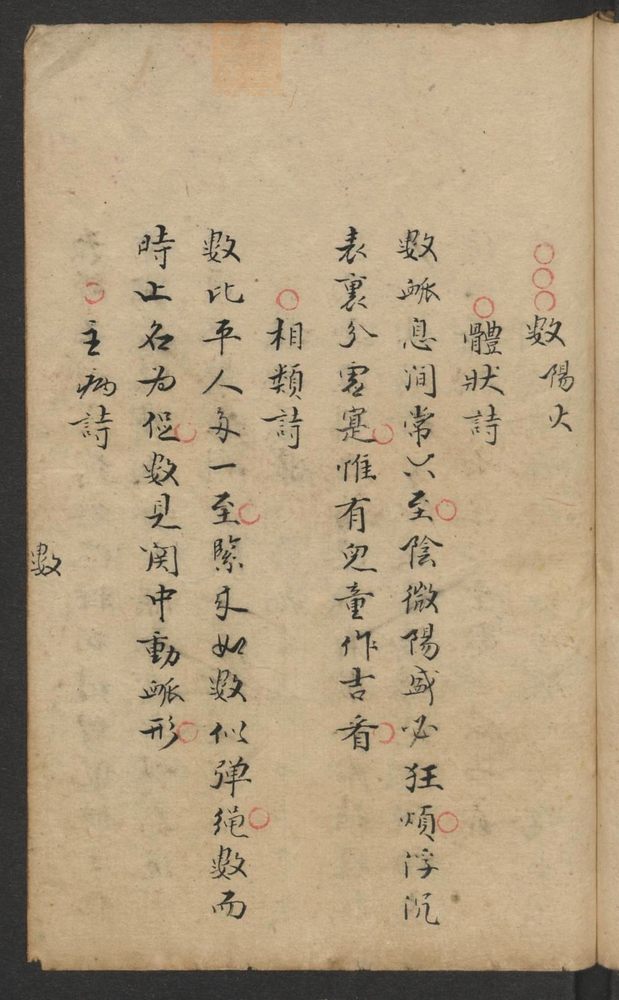 ○○○数陽火
○體狀詩
数脈息间常六至○陰微陽盛必狂煩○浮沉
表裏分虚寔○惟有児童作吉看○
○相類詩
数比平人多一至○緊来如数似弹绳○数而
時止名为促○数見関中動脈形○
○主病詩
数